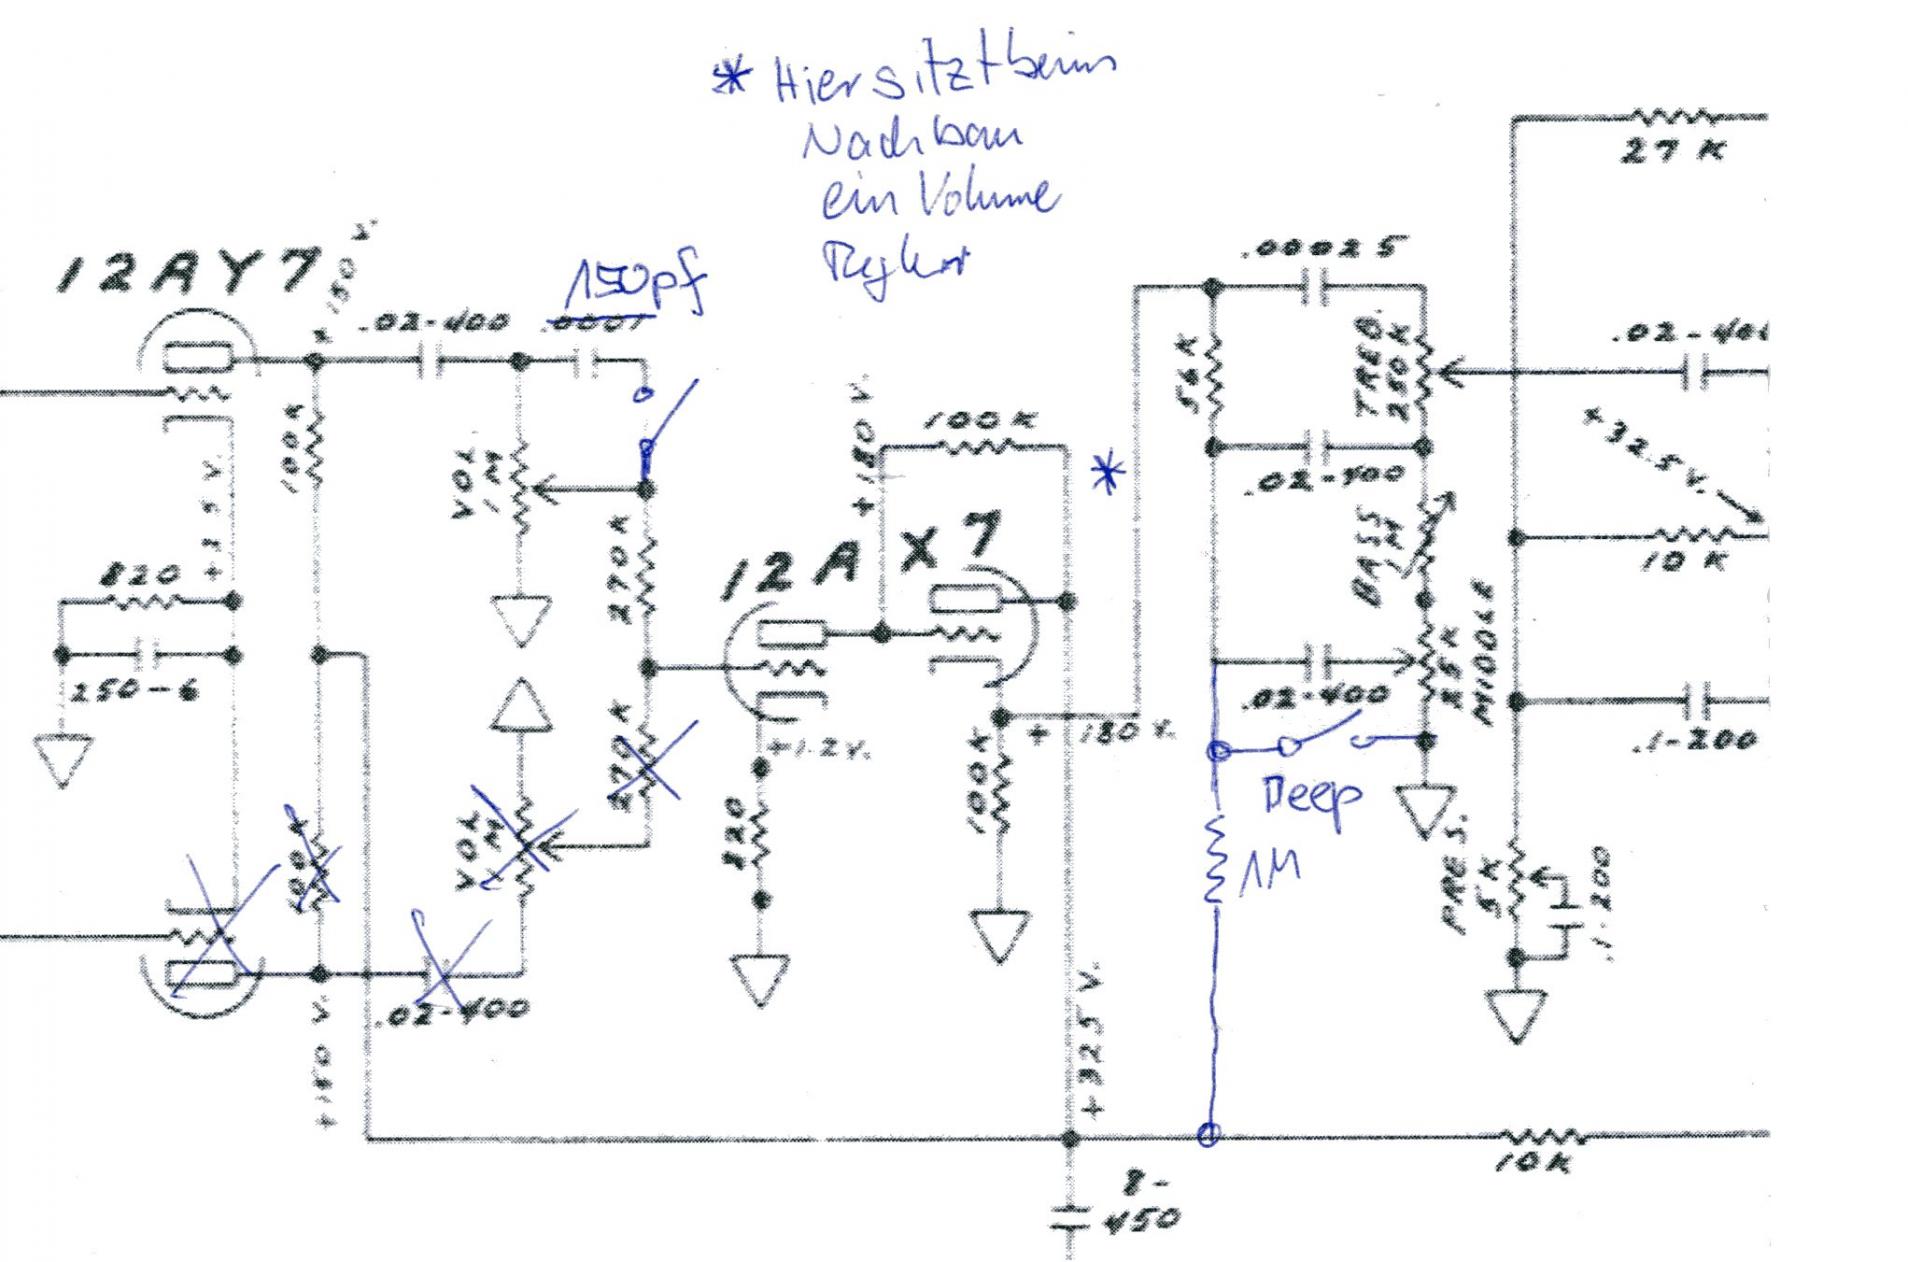 * Hier sitzt beim
Nachbau
ein Volume
Regler
27 K
12AY7
+ 150 V
150pf
.02-400
.0001
.00025
56 K
TREB.
250K
.02-400
+180 V.
100K
*
+32.5 V.
100K
VOL
1M
.02-400
BASS
1M
10 K
270K
12A X 7
820
+ 3 5 V.
250-6
25K
MIDDLE
.02-400
270K
+1.2 V.
+ 180 V.
.1-200
Deep
VOL
1M
100K
820
100K
1M
PRES.
5K
.1-200
.02-400
+150 V
+325 V.
10K
8-
450